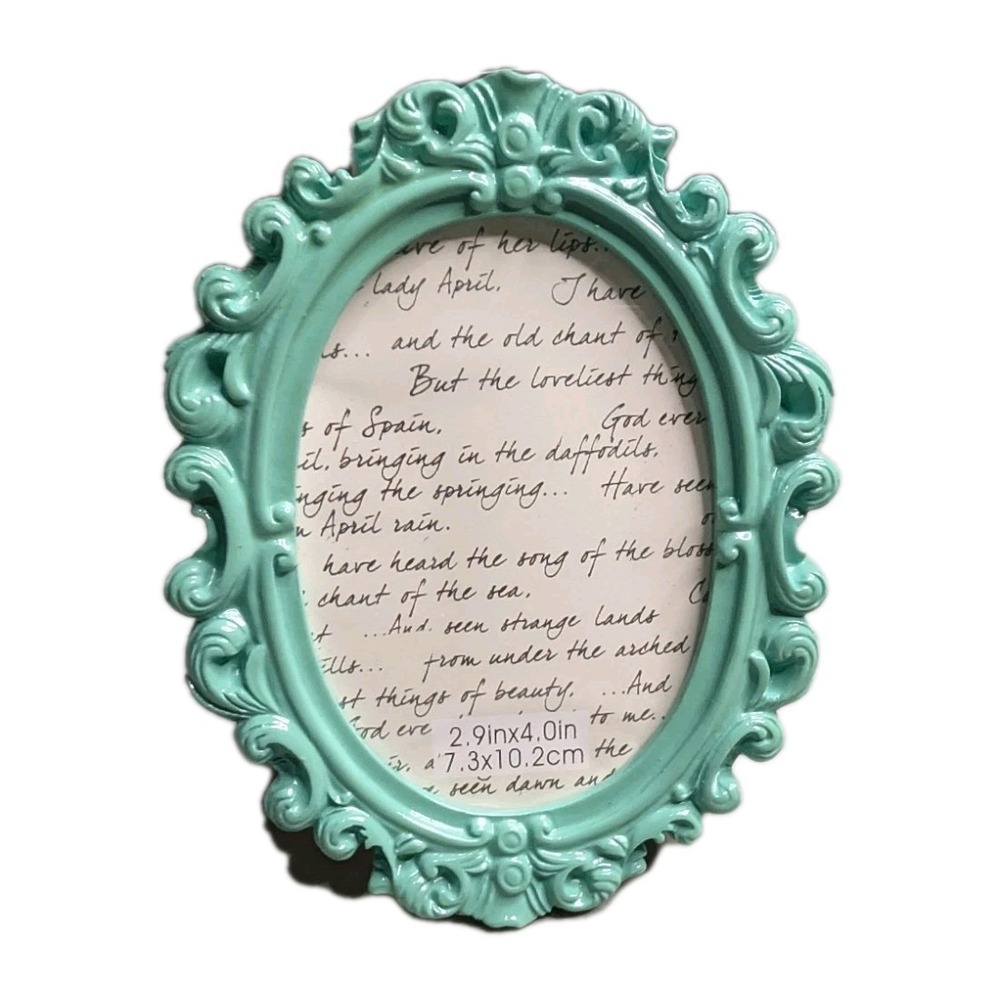 of her lips...
lady April. I have
... and the old chant of
But the loveliest thing
of Spain. God ever
bringing in the daffodils.
the springing... Have seen
April rain.
have heard the song of the
chant of the sea.
...And. seen strange lands
... from under the arched
things of beauty. ...And
to me..
2.9inx4.0in
the
7.3x10.2cm
seen dawn and